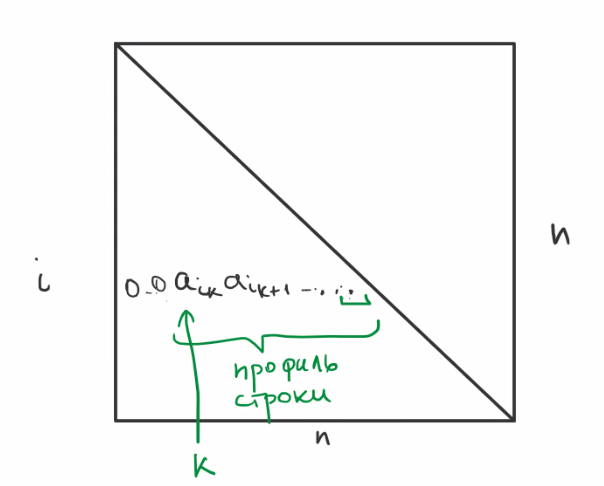 i
n
0..0 aᵢₖ aᵢₖ₊₁ -.....
профиль
строки
n
k